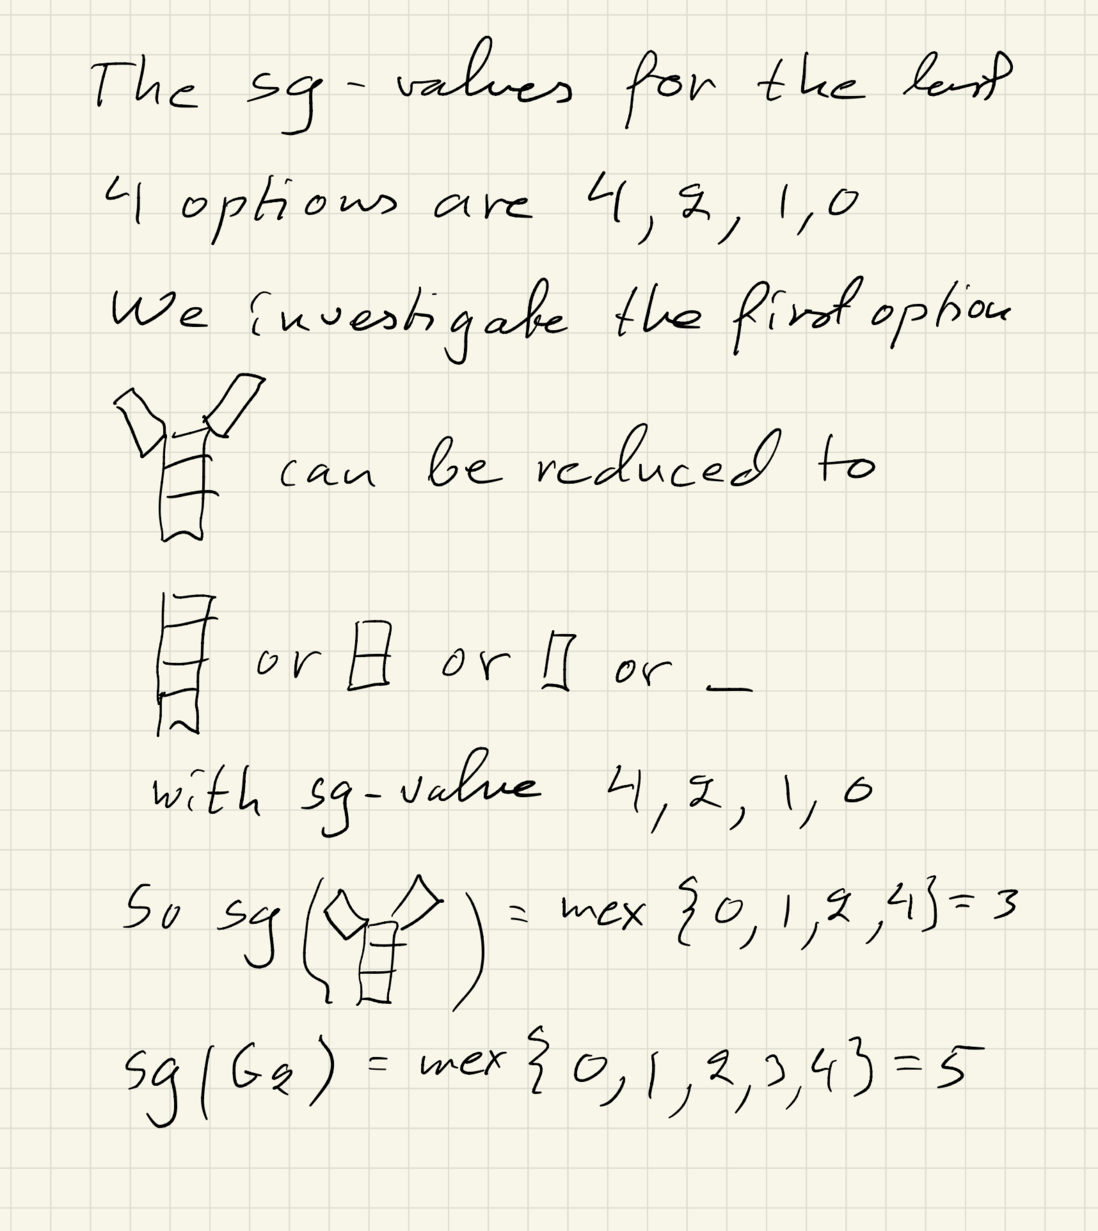 The sg-values for the last
4 options are 4, 2, 1, 0
We investigate the first option
can be reduced to
or or or
with sg-value 4, 2, 1, 0
So sg ( ) = mex {0, 1, 2, 4} = 3
sg(G2) = mex {0, 1, 2, 3, 4} = 5